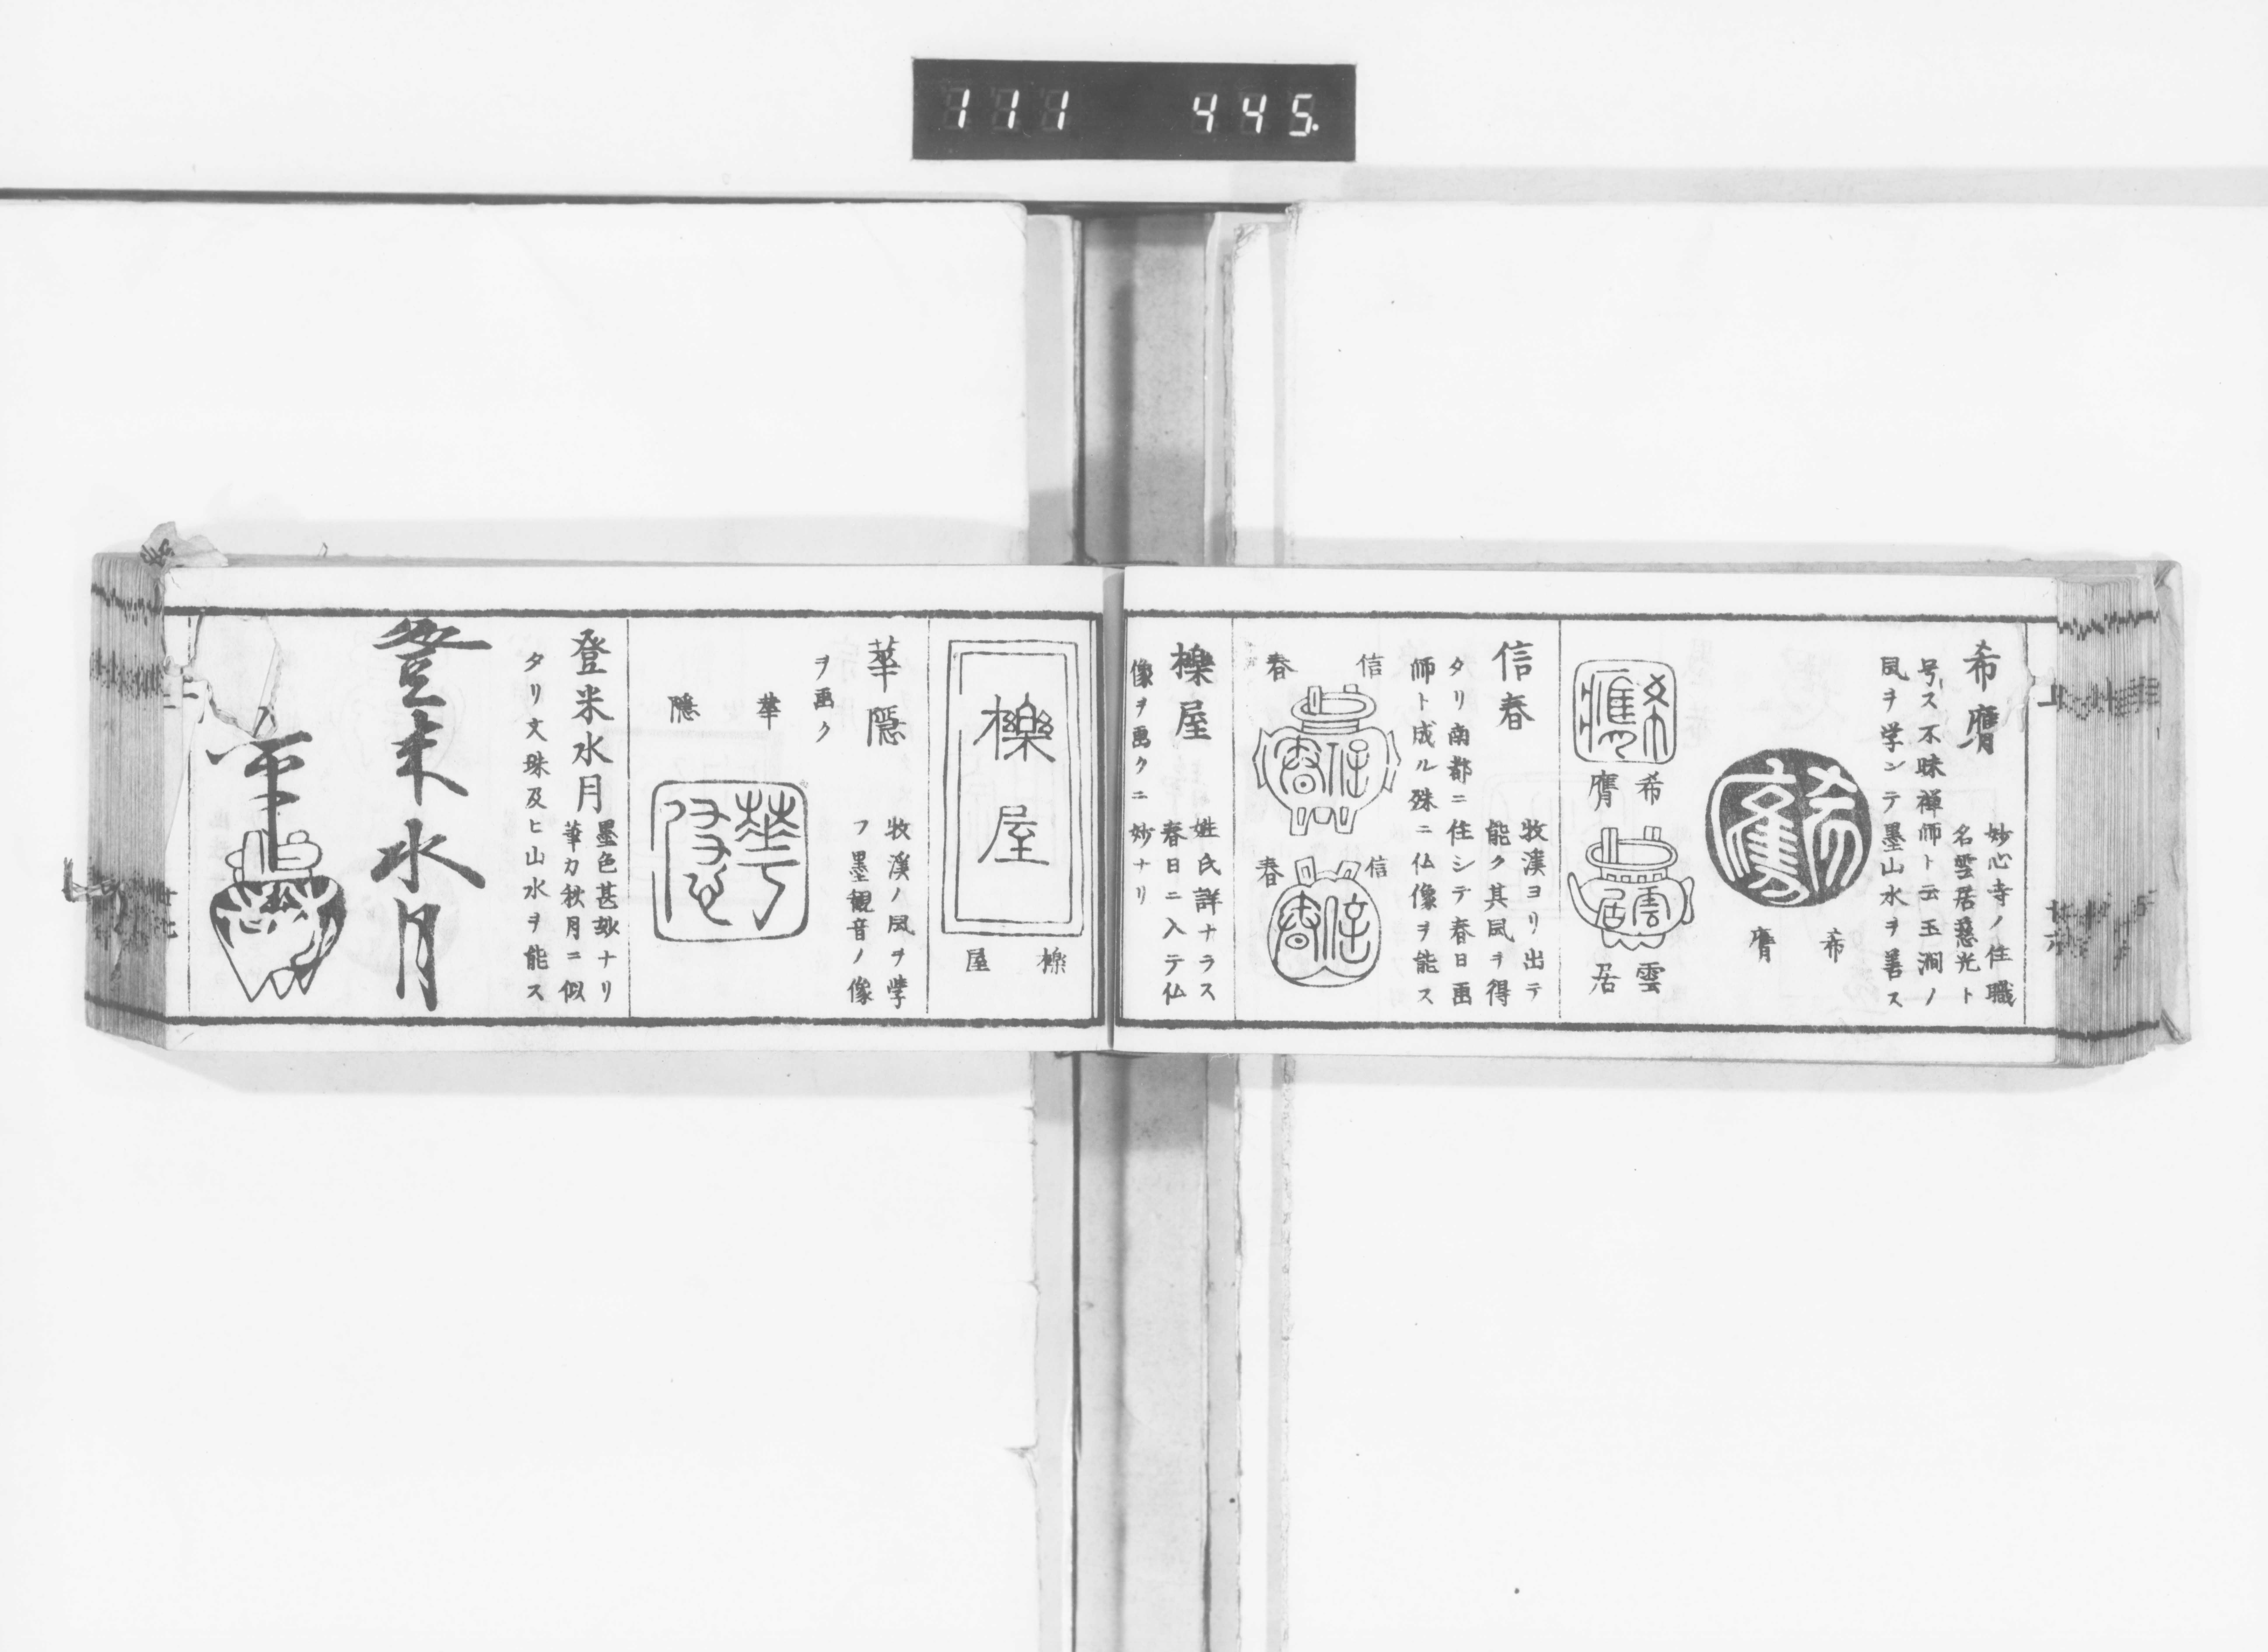 111 445.
希膺
妙心寺ノ住職
名雲居慈光ト
号ス不昧禅師ト云玉澗ノ
風ヲ学ンテ墨山水ヲ善ス
希
膺
希
膺
雲
居
信春
牧溪ヨリ出テ
能ク其風ヲ得
タリ南都ニ住シテ春日画
師ト成ル殊ニ仏像ヲ能ス
信
春
信
春
櫟屋
姓氏詳ナラス
春日ニ入テ仏
像ヲ畫クニ妙ナリ
櫟屋
櫟
屋
華隠
牧溪ノ風ヲ學
フ墨観音ノ像
ヲ畫ク
華
隠
登米水月
墨色甚敏ナリ
筆力秋月ニ似
タリ文珠及ヒ山水ヲ能ス
登米水月
筆